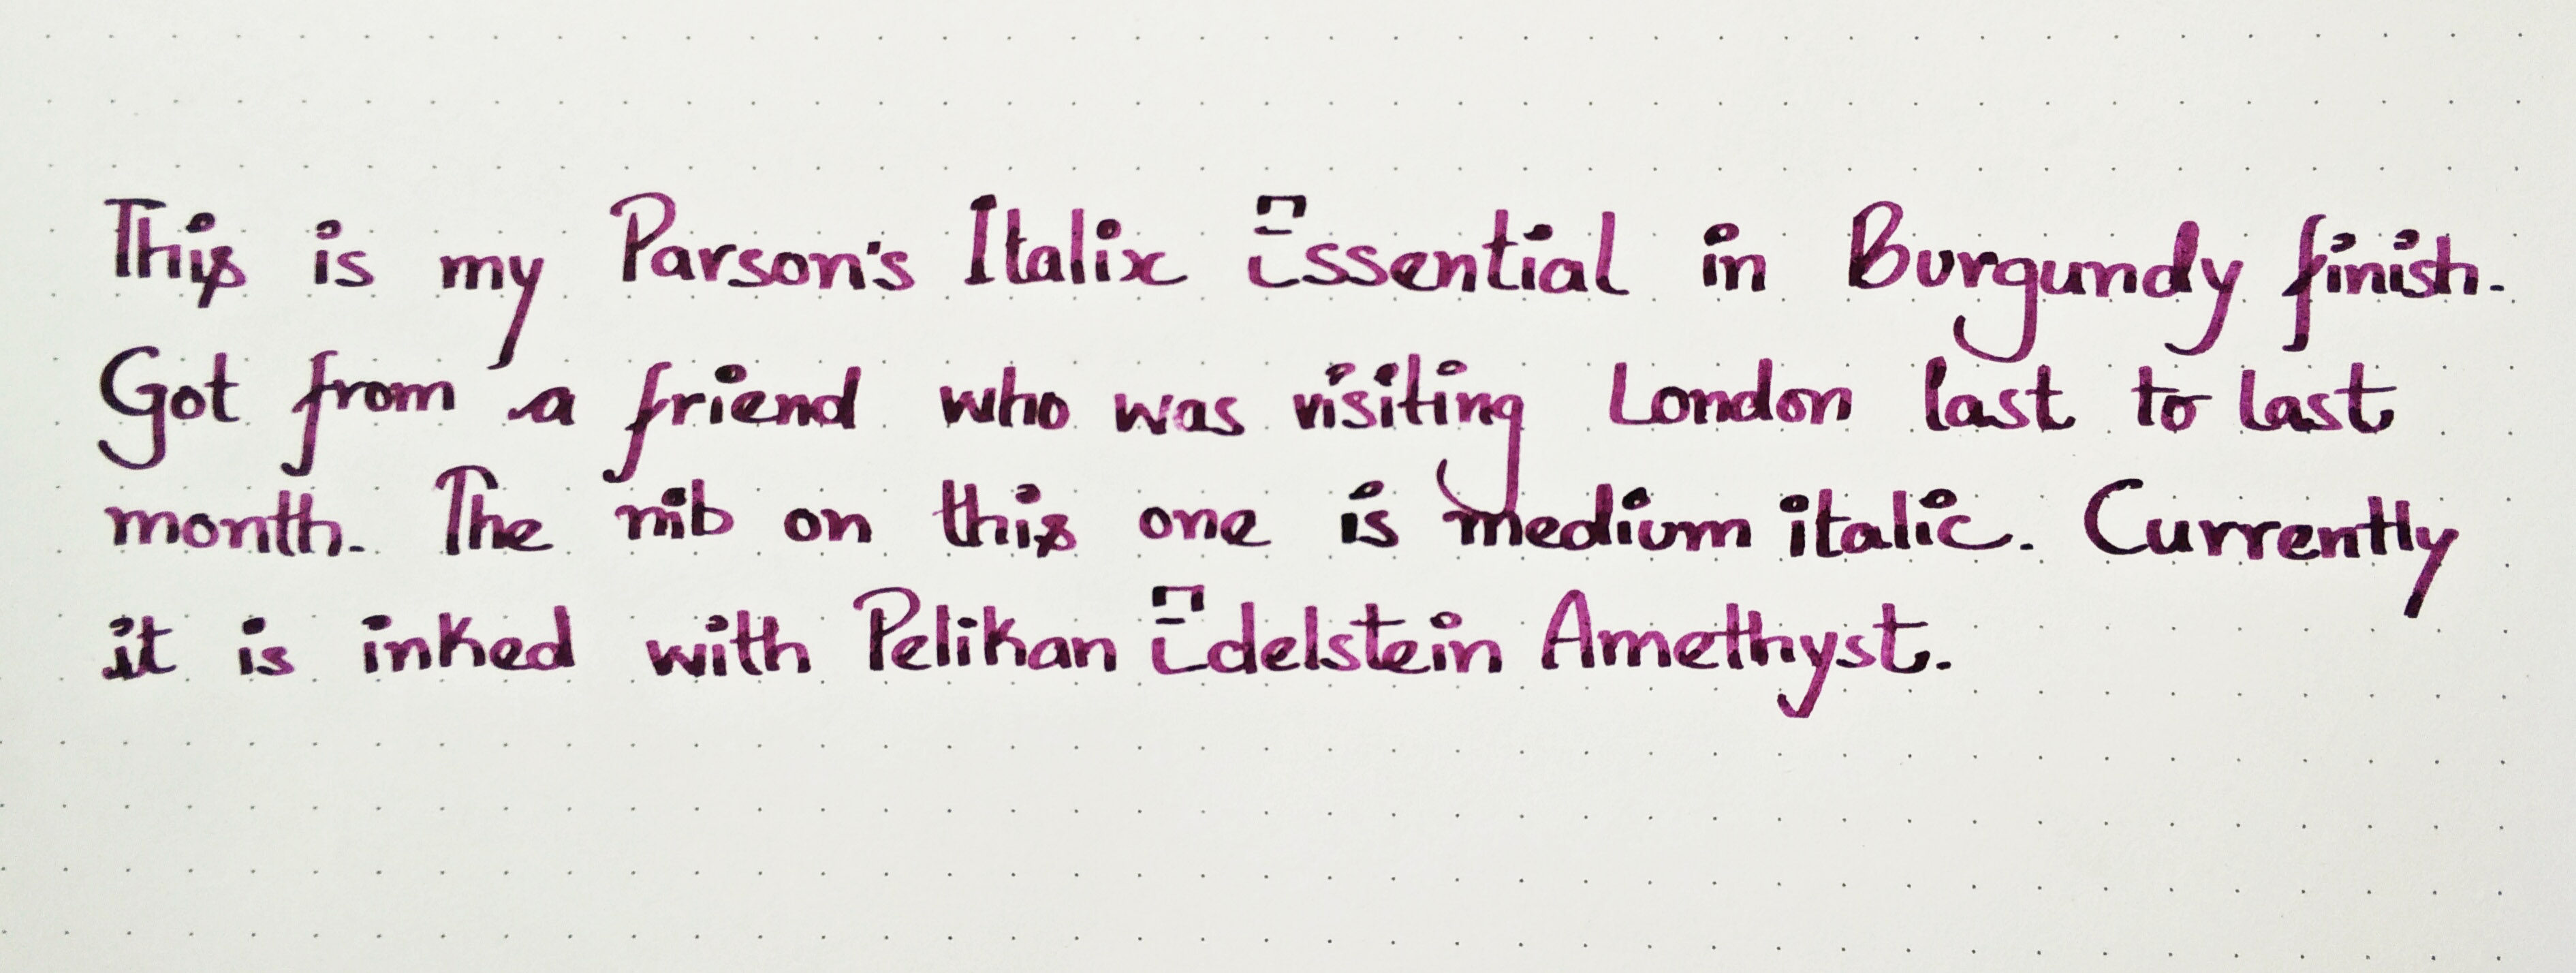 This is my Parson's Italix Essential in Burgundy finish.
Got from a friend who was visiting London last to last
month. The nib on this one is medium italic. Currently
it is inked with Pelikan Edelstein Amethyst.